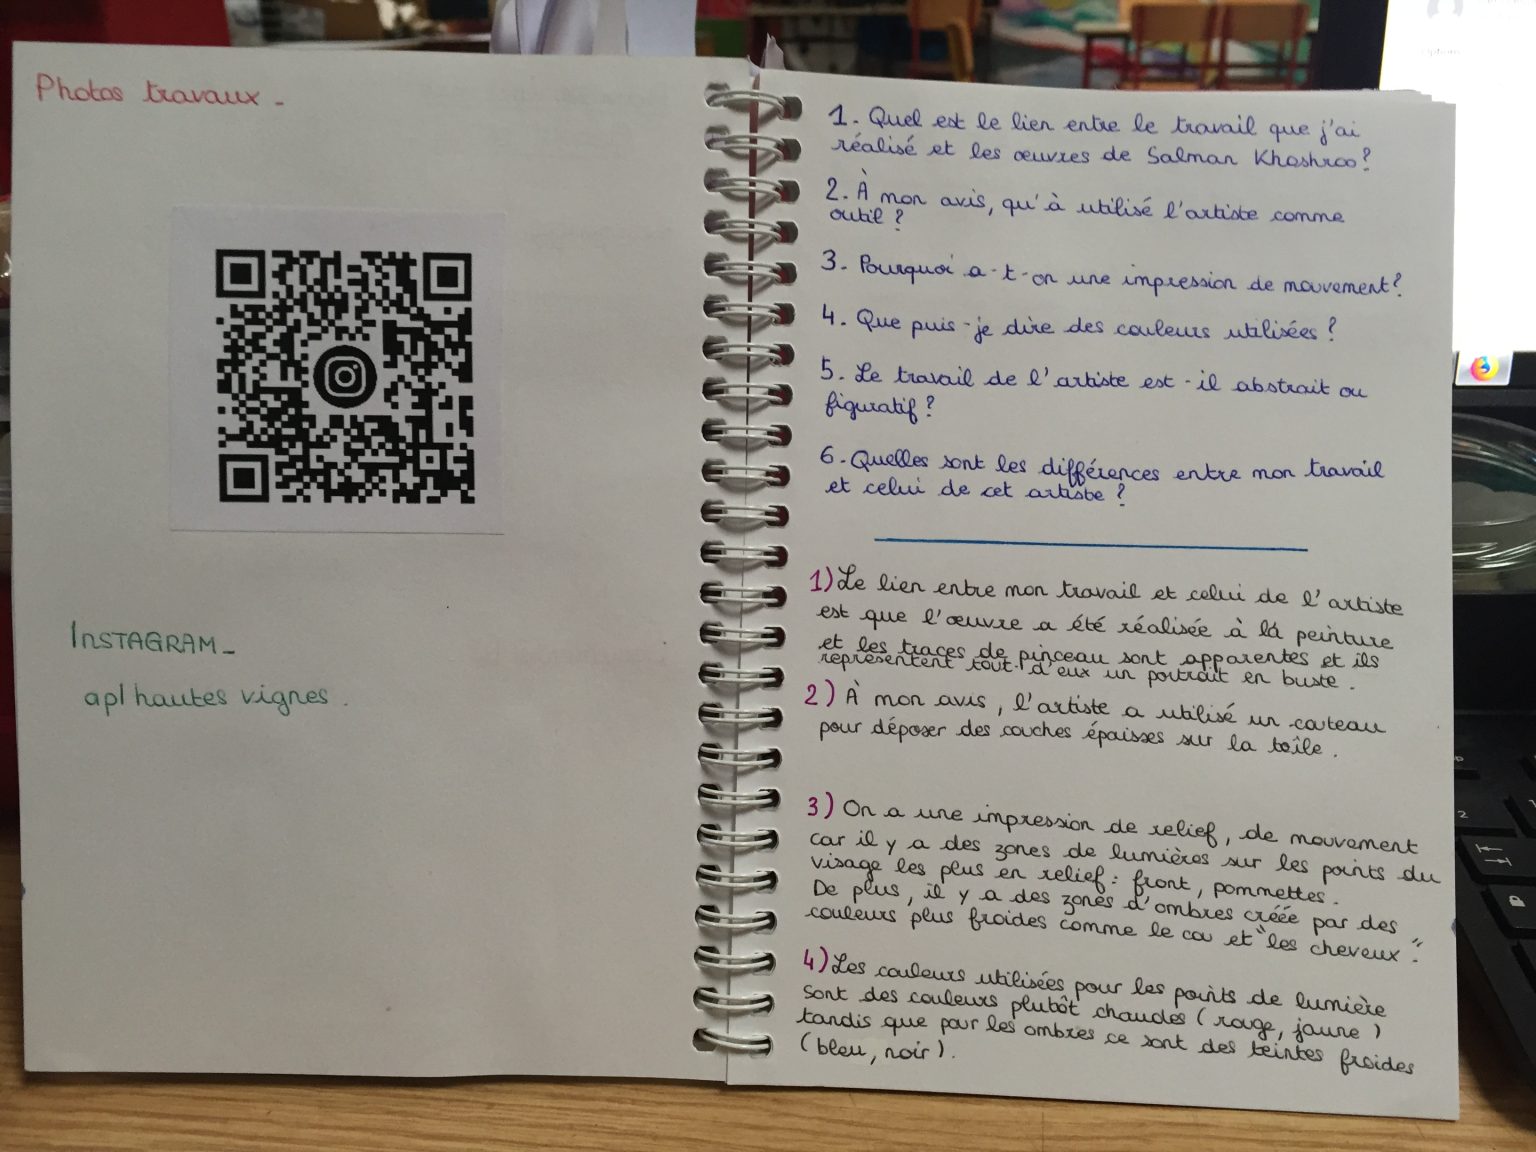 Photos travaux -
INSTAGRAM -
apl hautes vignes.
1. Quel est le lien entre le travail que j'ai
réalisé et les œuvres de Salman Khoshroo?
2. À mon avis, qu'à utilisé l'artiste comme
outil ?
3. Pourquoi a-t-on une impression de mouvement?
4. Que puis-je dire des couleurs utilisées ?
5. Le travail de l'artiste est-il abstrait ou
figuratif ?
6. Quelles sont les différences entre mon travail
et celui de cet artiste ?
1) Le lien entre mon travail et celui de l'artiste
est que l'œuvre a été réalisée à là peinture
et les traces de pinceau sont apparentes et ils
représentent tout d'eux un portrait en buste.
2) À mon avis, l'artiste a utilisé un couteau
pour déposer des couches épaisses sur la toîle.
3) On a une impression de relief, de mouvement
car il y a des zones de lumières sur les points du
visage les plus en relief : front, pommettes.
De plus, il y a des zones d'ombres créée par des
couleurs plus froides comme le cou et "les cheveux".
4) Les couleurs utilisées pour les points de lumière
sont des couleurs plutôt chaudes (rouge, jaune)
tandis que pour les ombres ce sont des teintes froides
(bleu, noir).